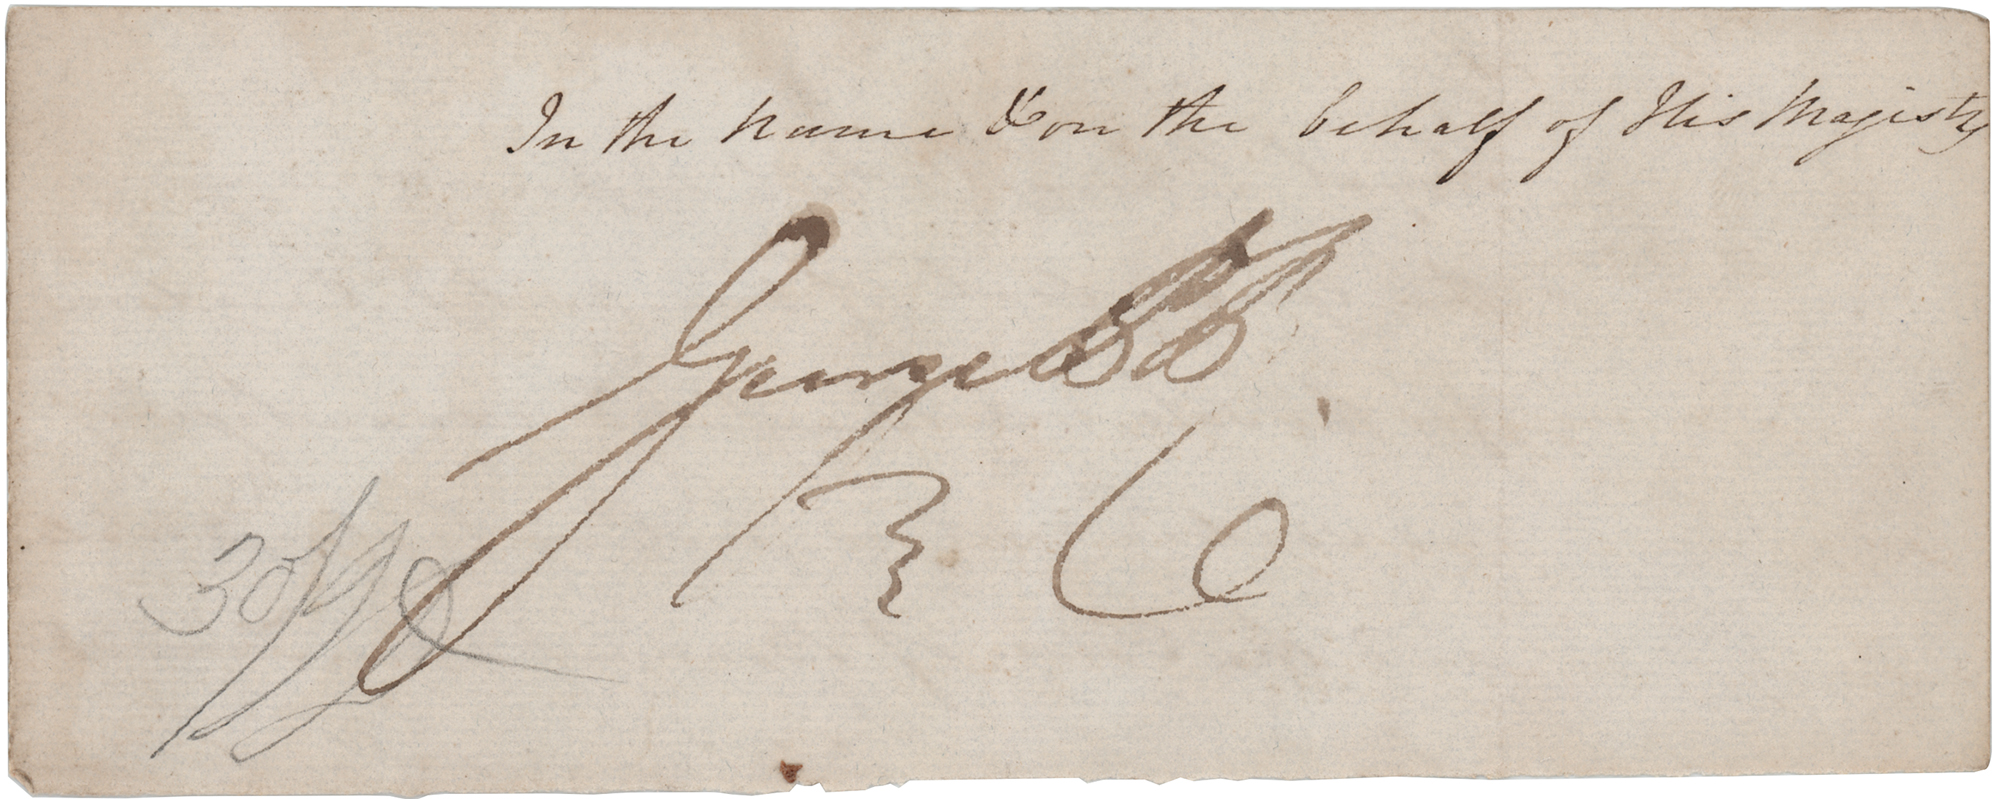 In the Name & on the behalf of His Majesty
George PR